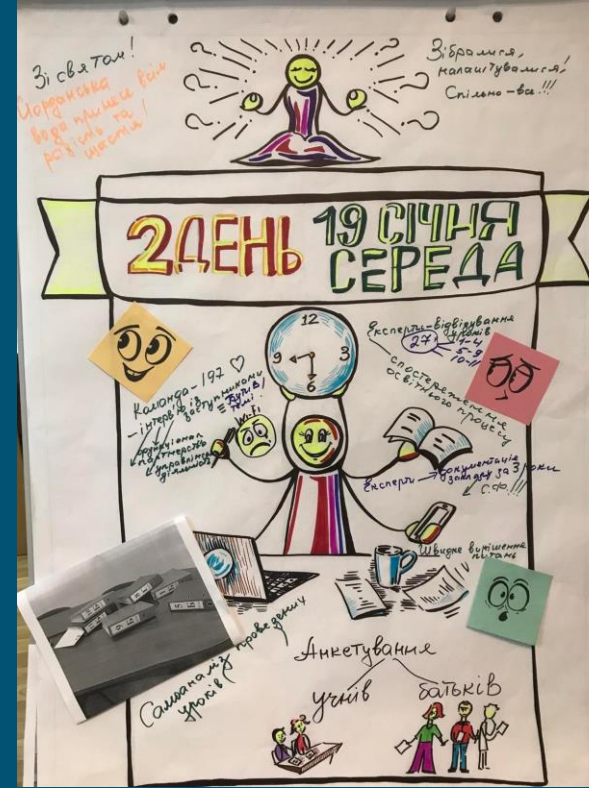 Зі святом!
Йорданська
вода принесе всім
радість та
щастя!
Зібралися,
налаштувалися,
Спільно - все !!!
2 ДЕНЬ
19 СІЧНЯ
СЕРЕДА
12
9
3
6
Експерти - відвідування
уроків
27
1-4
5-9
10-11
спостереження
освітнього процесу
Команда - 197
- інтерв'ю із
заступниками
Бути в
темі
Wi-Fi
функціонал
партнерство
управлінська
діяльність
Експерти → документація
закладу за 3 роки
Швидке вирішення
питань
Самоаналіз проведених
уроків
Анкетування
учнів
батьків